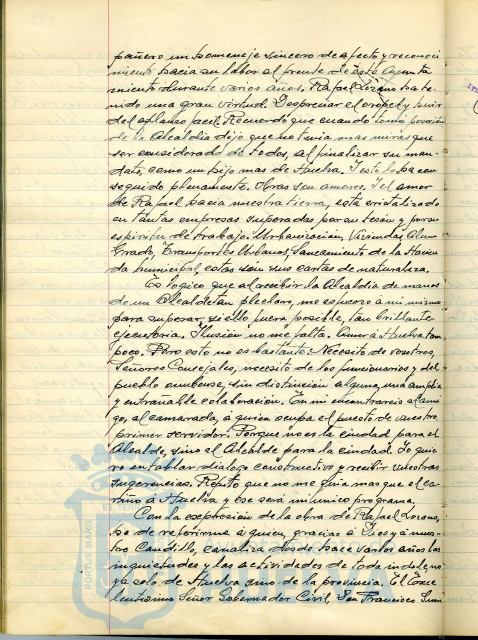 pañero un homenaje sincero de afecto y reconoci
miento hacia su labor al frente de este Ayunta
miento durante varios años. Rafael Lozano ha te
nido una gran virtud. Despreciar el oropel y huir
del aplauso facil. Recuerdo que cuando tomó posesión
de la Alcaldía dijo que no tenia mas miras que
ser considerado de todos, al finalizar su man-
dato, como un hijo mas de Huelva. Y esto lo ha con
seguido plenamente. Obras son amores. Y el amor
de Rafael hacia nuestra tierra, está cristalizado
en tantas empresas superadas por su tesón y por su
espiritu de trabajo. Urbanización, Viviendas, Alum
brado, Transportes Urbanos, Saneamiento de la Hacien
da municipal, estas son sus cartas de naturaleza.
Es logico que al recibir la Alcaldía de manos
de un Alcalde tan preclaro, me esfuerzo á mi mismo
para superar, si ello fuera posible, tan brillante
ejecutoria. Ilusión no me falta. Amor á Huelva tam
poco. Pero esto no es bastante. Necesito de vosotros,
Señores Concejales, necesito de los funcionarios y del
pueblo onubense, sin distinción alguna, una amplia
y entrañable colaboración. En mi encontrareis al ami
go, al camarada, á quien ocupa el puesto de vuestro
primer servidor. Porque no es la ciudad para el
Alcalde, sino el Alcalde para la ciudad. Yo quie
ro entablar dialogo constructivo y recibir vuestras
sugerencias. Repito que no me guia mas que el ca-
riño á Huelva y ese será mi unico programa.
Con la expresión de la obra de Rafael Lozano,
he de referirme á quien, gracias á Dios y á nues-
tro Caudillo, canaliza desde hace varios años las
inquietudes y las actividades de todo indole, no
ya solo de Huelva sino de la provincia. El Exce
lentisimo Señor Gobernador Civil, Don Francisco
PORTUS MARIS